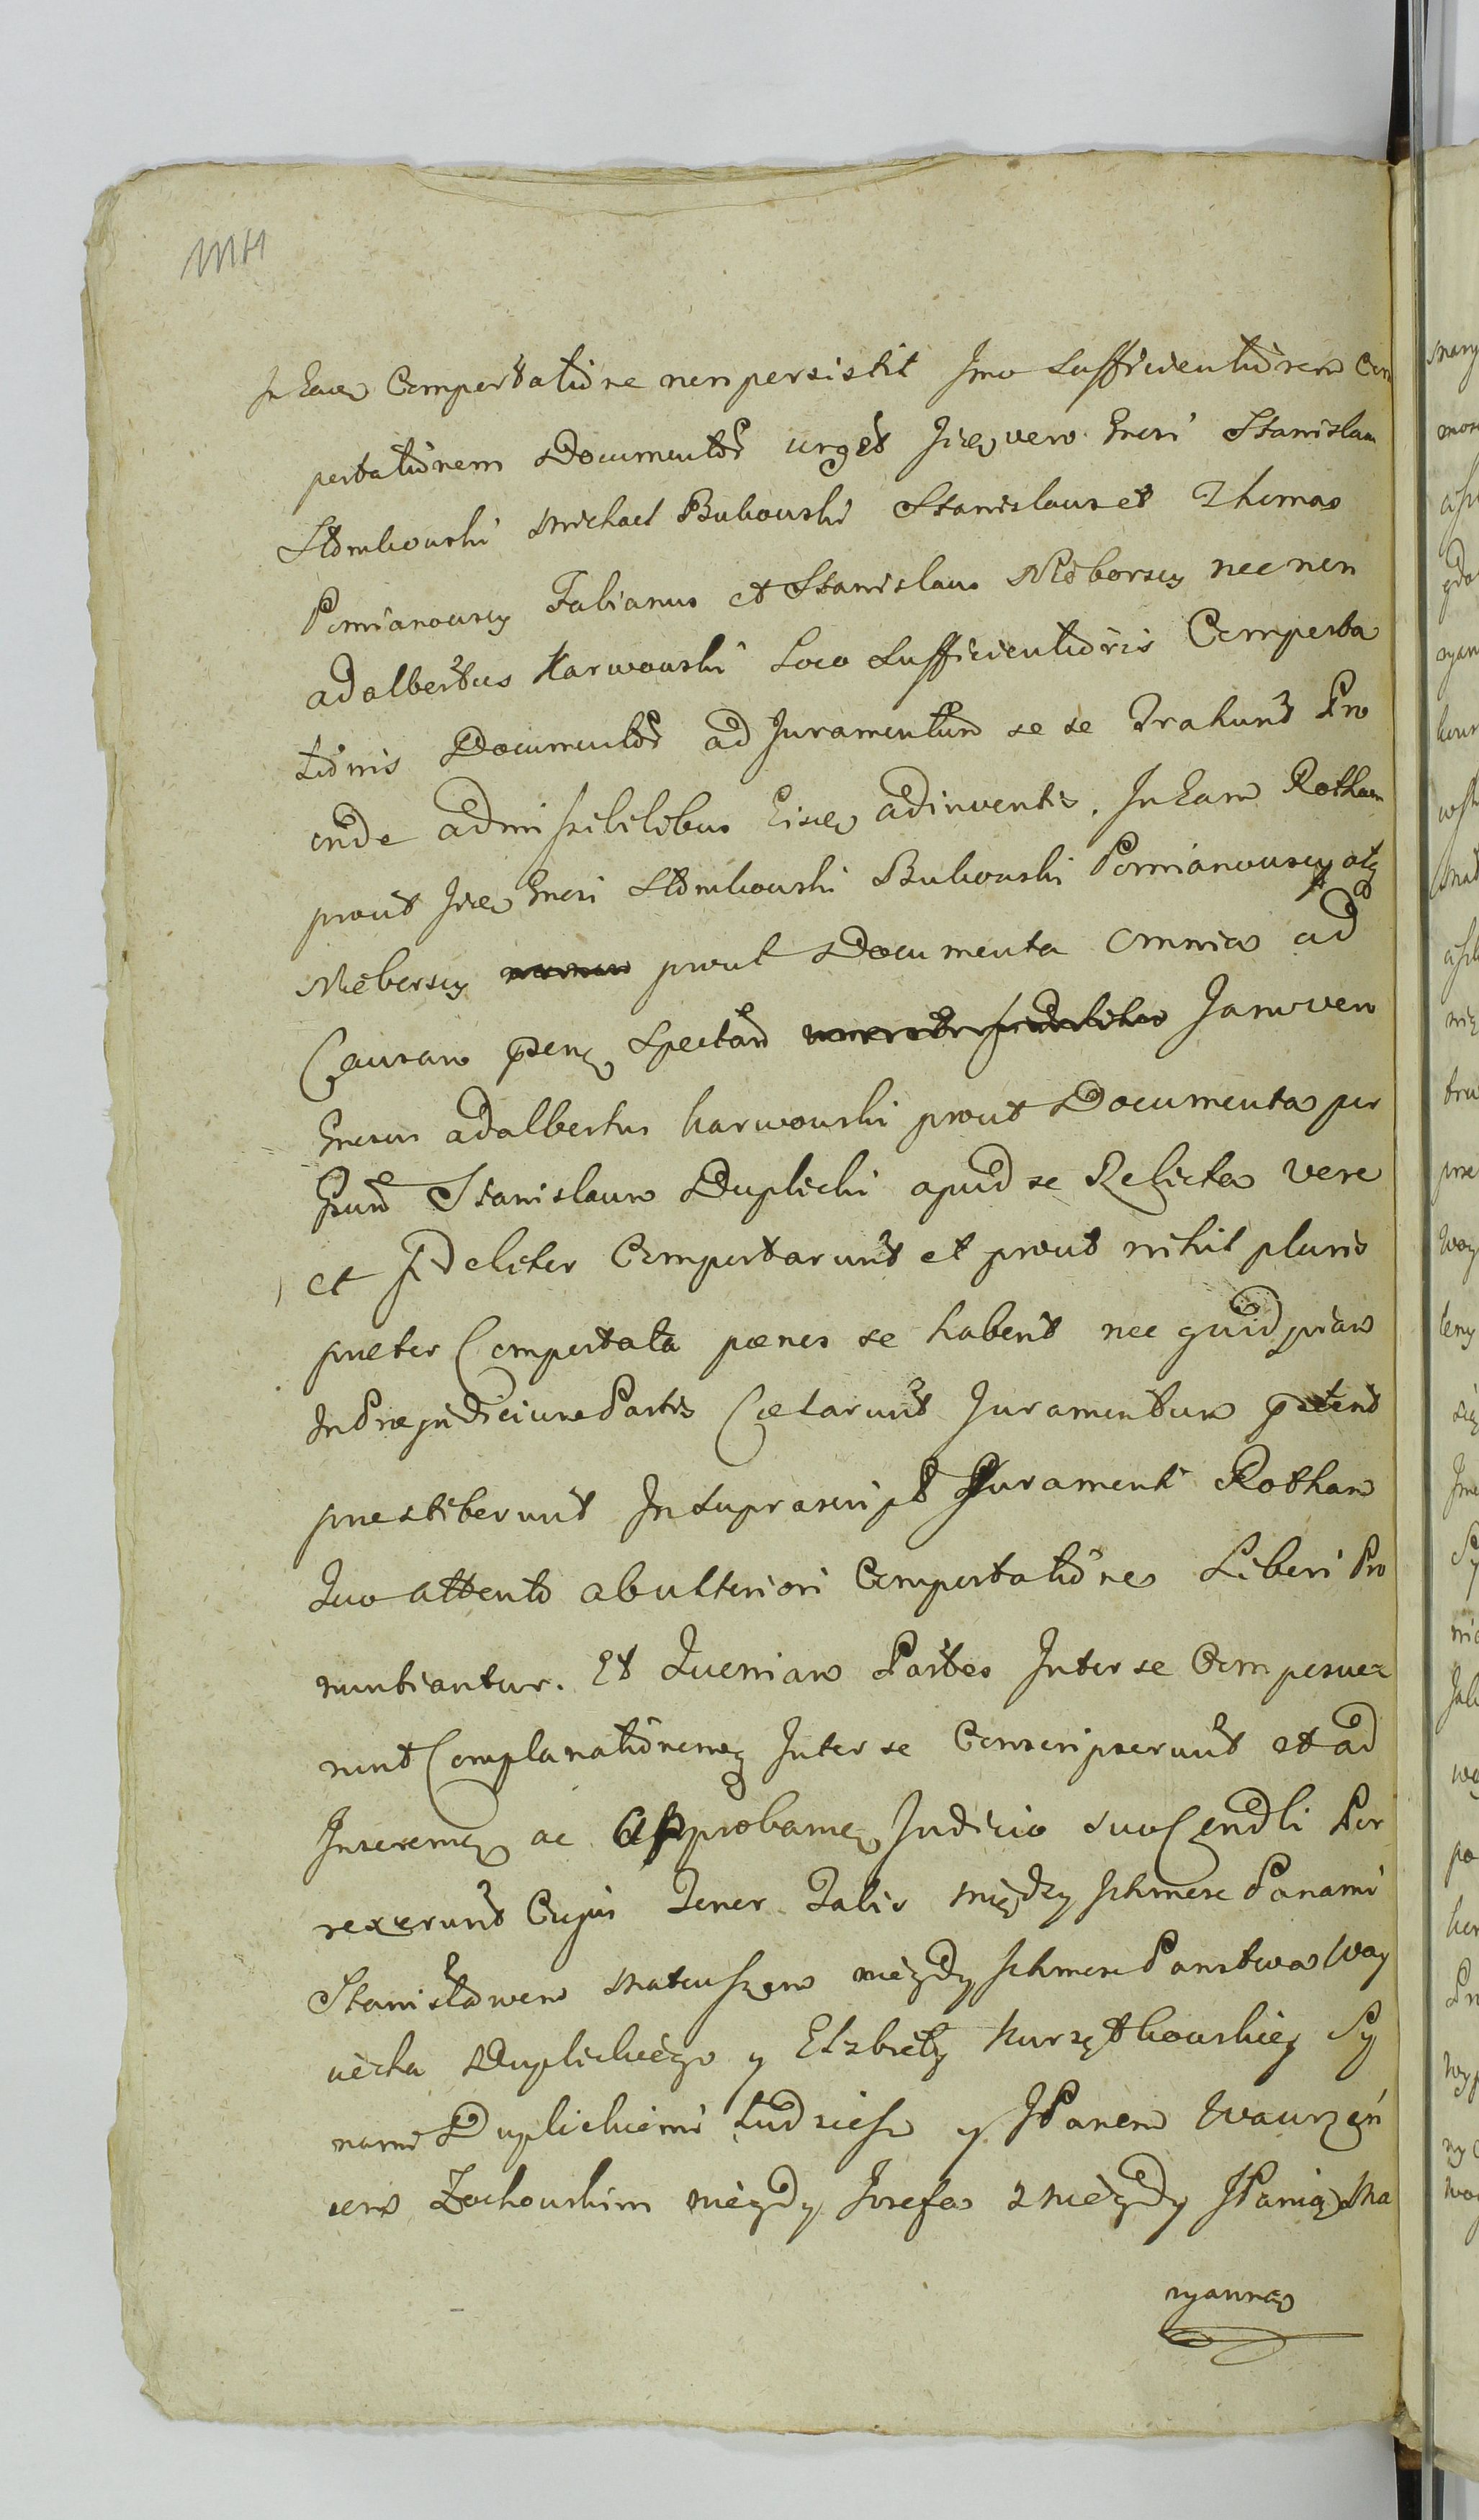 In Eam Comportatione non persistit Imo Sufficientiorem Com
portationem Documentor urget Iidem vero Gnosi Stanislaus
Stomkowski Michael Bukowski Stanislaus et Thomas
Pomianowscy Fabianus et Stanislaus Nieborscy nec non
Adalbertus Karwowski Loco Sufficientioris Comporta
tionis Documentor ad Juramentum se se Trahunt Pro
inde admissibilibus Eisdem adinventis. In Eam Rotham
prout Iidem Gnosi Stomkowski Bukowski Pomianowscy atq
Nieborscy prout Documenta Omnia ad
Causam psenq Spectan Jam vero
Gnosus Adalbertus Karwowski prout Documenta per
Gsum Stanislaum Duplicki apud se Relicta vere
et Fideliter Comportarunt et prout nihil pluris
praeter Comportata poenes se habent nec quidpiam
In Praejudicium Partis Caelarunt Juramentum
praestiterunt In Suprascript Juramenti Rotham
Quo attento ab ulteriori Comportatione Liberi Pro
nuntiantur. Et Quoniam Partes Inter se Composue=
runt Complanationemq Inter se Conscripserunt et ad
Inseremq ac Approbamq Judicio suo Cendli Por
rexerunt Cujus Tenor Talis Między Ichmosc Panami
Stanisławem Mateuszem niegdy Ichmosc Panstwa Woy
ciecha Duplickiego y Elzbiety Kurzątkowskiey Sy
nami Duplickiemi tudziesz y JPanem Wawrzęń
cem Zochowskim niegdy Jozefa z niegdy JPanią Ma
ryanną